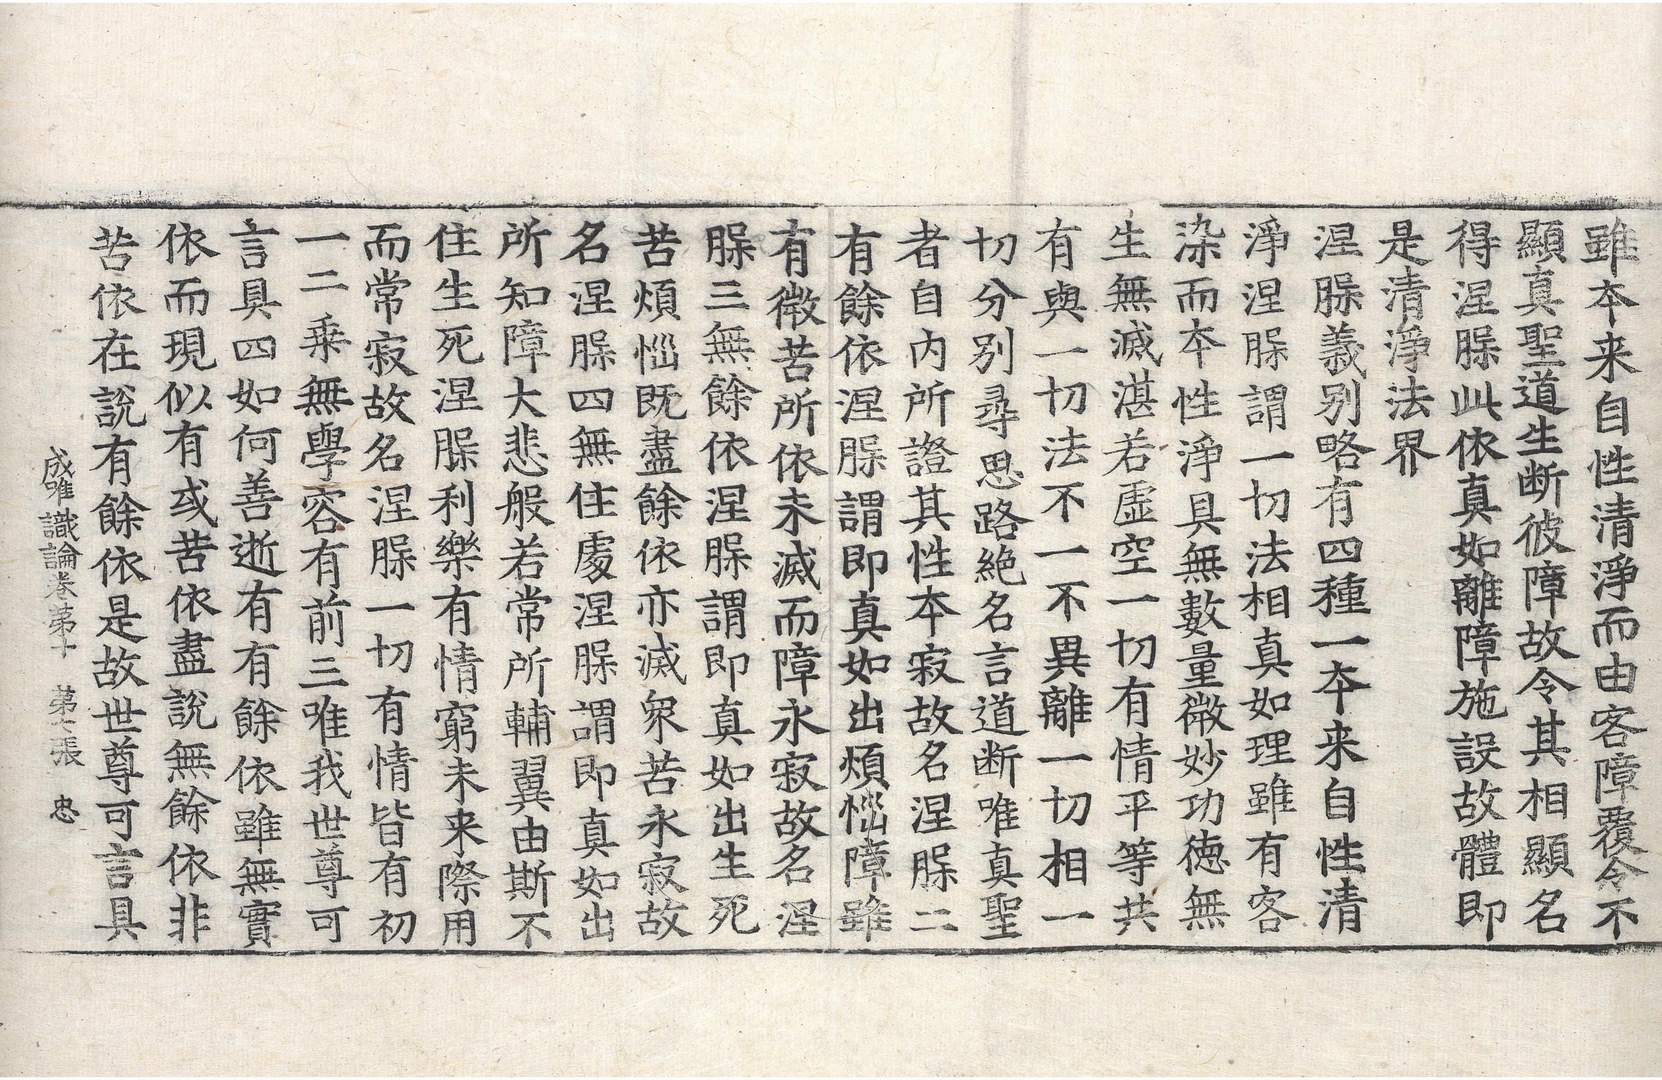 雖本来自性清淨而由客障覆令不
顯真聖道生断彼障故令其相顯名
得涅槃此依真如離障施設故體即
是清淨法界
涅槃義別略有四種一本来自性清
淨涅槃謂一切法相真如理雖有客
染而本性淨具無數量微妙功德無
生無滅湛若虛空一切有情平等共
有與一切法不一不異離一切相一
切分別尋思路絶名言道断唯真聖
者自内所證其性本寂故名涅槃二
有餘依涅槃謂即真如出煩惱障雖
有微苦所依未滅而障永寂故名涅
槃三無餘依涅槃謂即真如出生死
苦煩惱既盡餘依亦滅衆苦永寂故
名涅槃四無住處涅槃謂即真如出
所知障大悲般若常所輔翼由斯不
住生死涅槃利樂有情窮未来際用
而常寂故名涅槃一切有情皆有初
一二乘無學容有前三唯我世尊可
言具四如何善逝有有餘依雖無實
依而現似有或苦依盡說無餘依非
苦依在說有餘依是故世尊可言具
成唯識論卷第十　第七張　忠